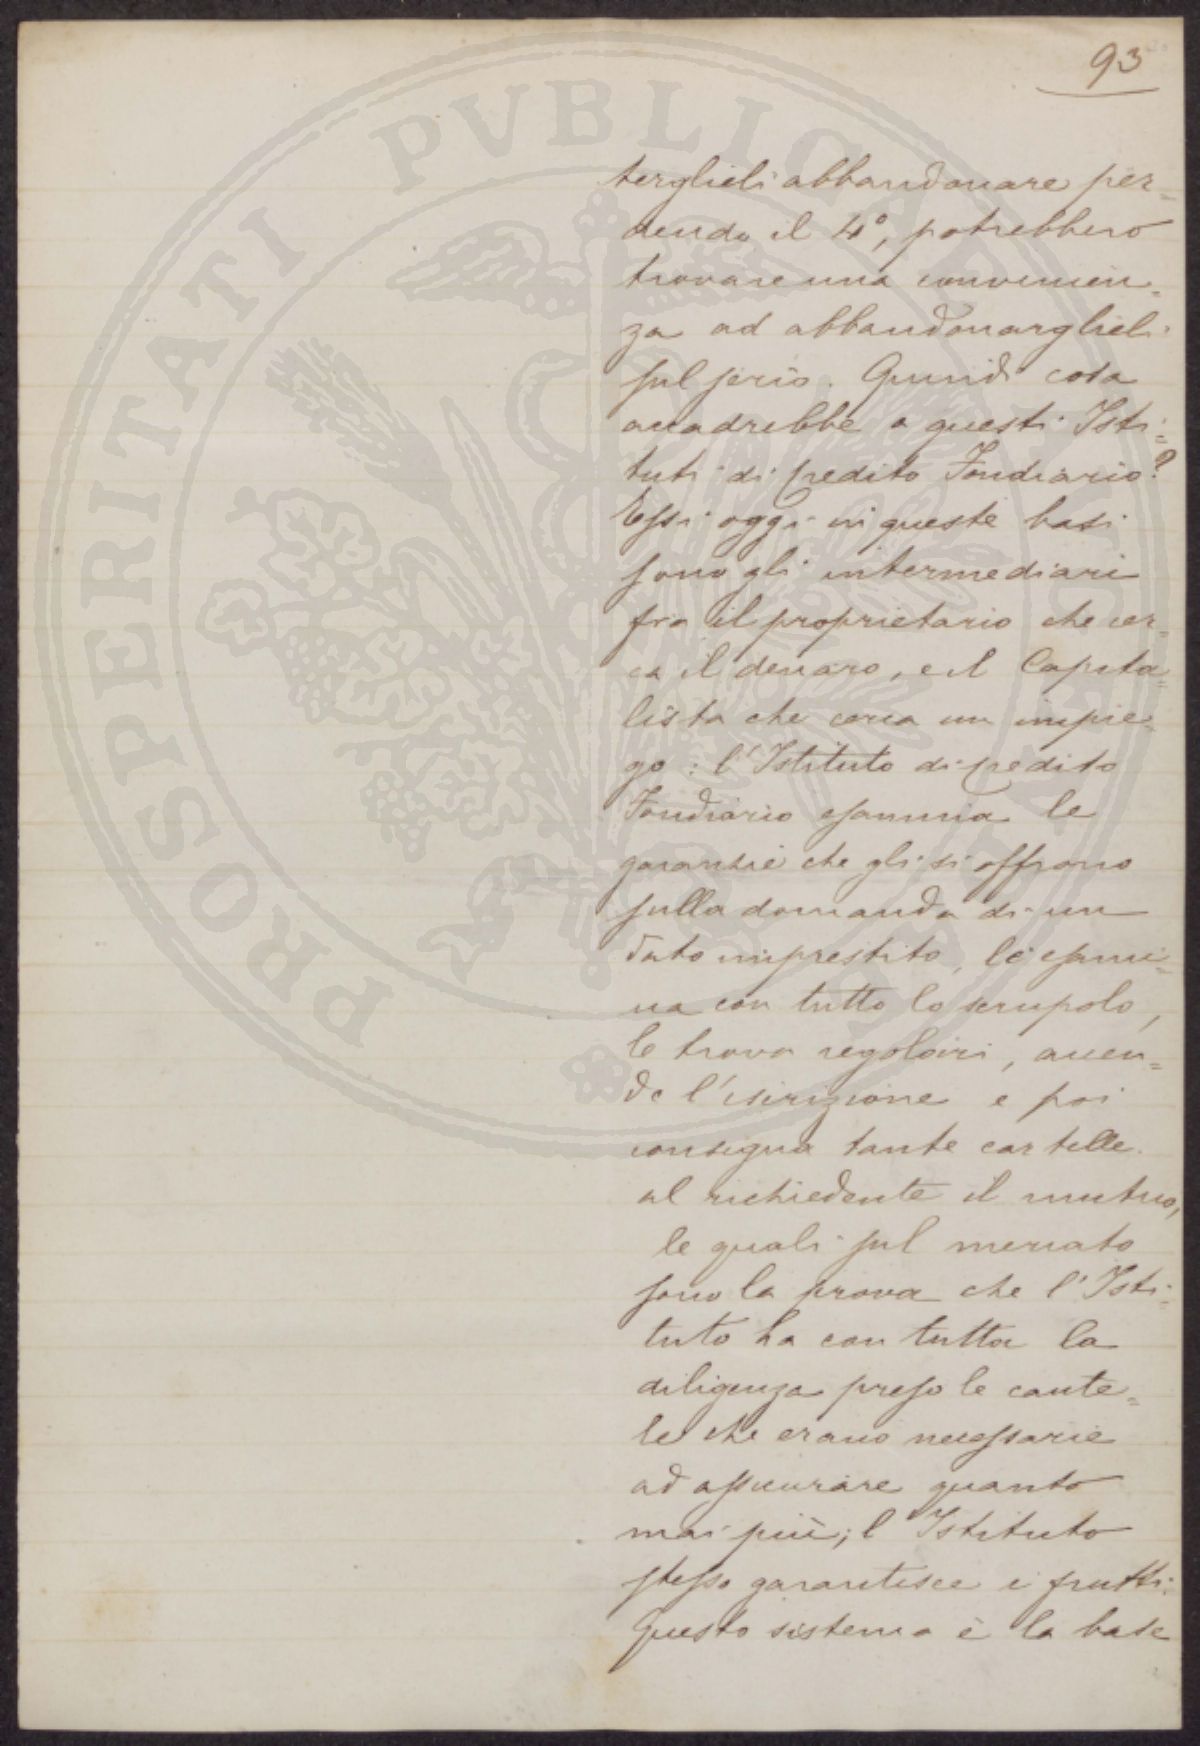 93
terglieli abbandonare per=
dendo il 4°, potrebbero
trovare una convenien=
za ad abbandonarglieli
sul serio. Quindi cosa
accadrebbe a questi Isti=
tuti di Credito Fondiario?
Essi oggi in queste basi
sono gli intermediari
fra il proprietario che cer=
ca il denaro, e il Capita=
lista che cerca un impie=
go: l'Istituto di Credito
Fondiario esamina le
garanzie che gli si offrono
sulla domanda di un
dato imprestito, le esami=
na con tutto lo scrupolo,
le trova regolari, accen=
de l'iscrizione e poi
consegna tante cartelle
al richiedente il mutuo,
le quali sul mercato
sono la prova che l'Isti=
tuto ha con tutta la
diligenza preso le caute=
le che erano necessarie
ad assicurare quanto
mai più; l'Istituto
stesso garantisce i frutti.
Questo sistema è la base
PROSPERITATI PVBLICAE